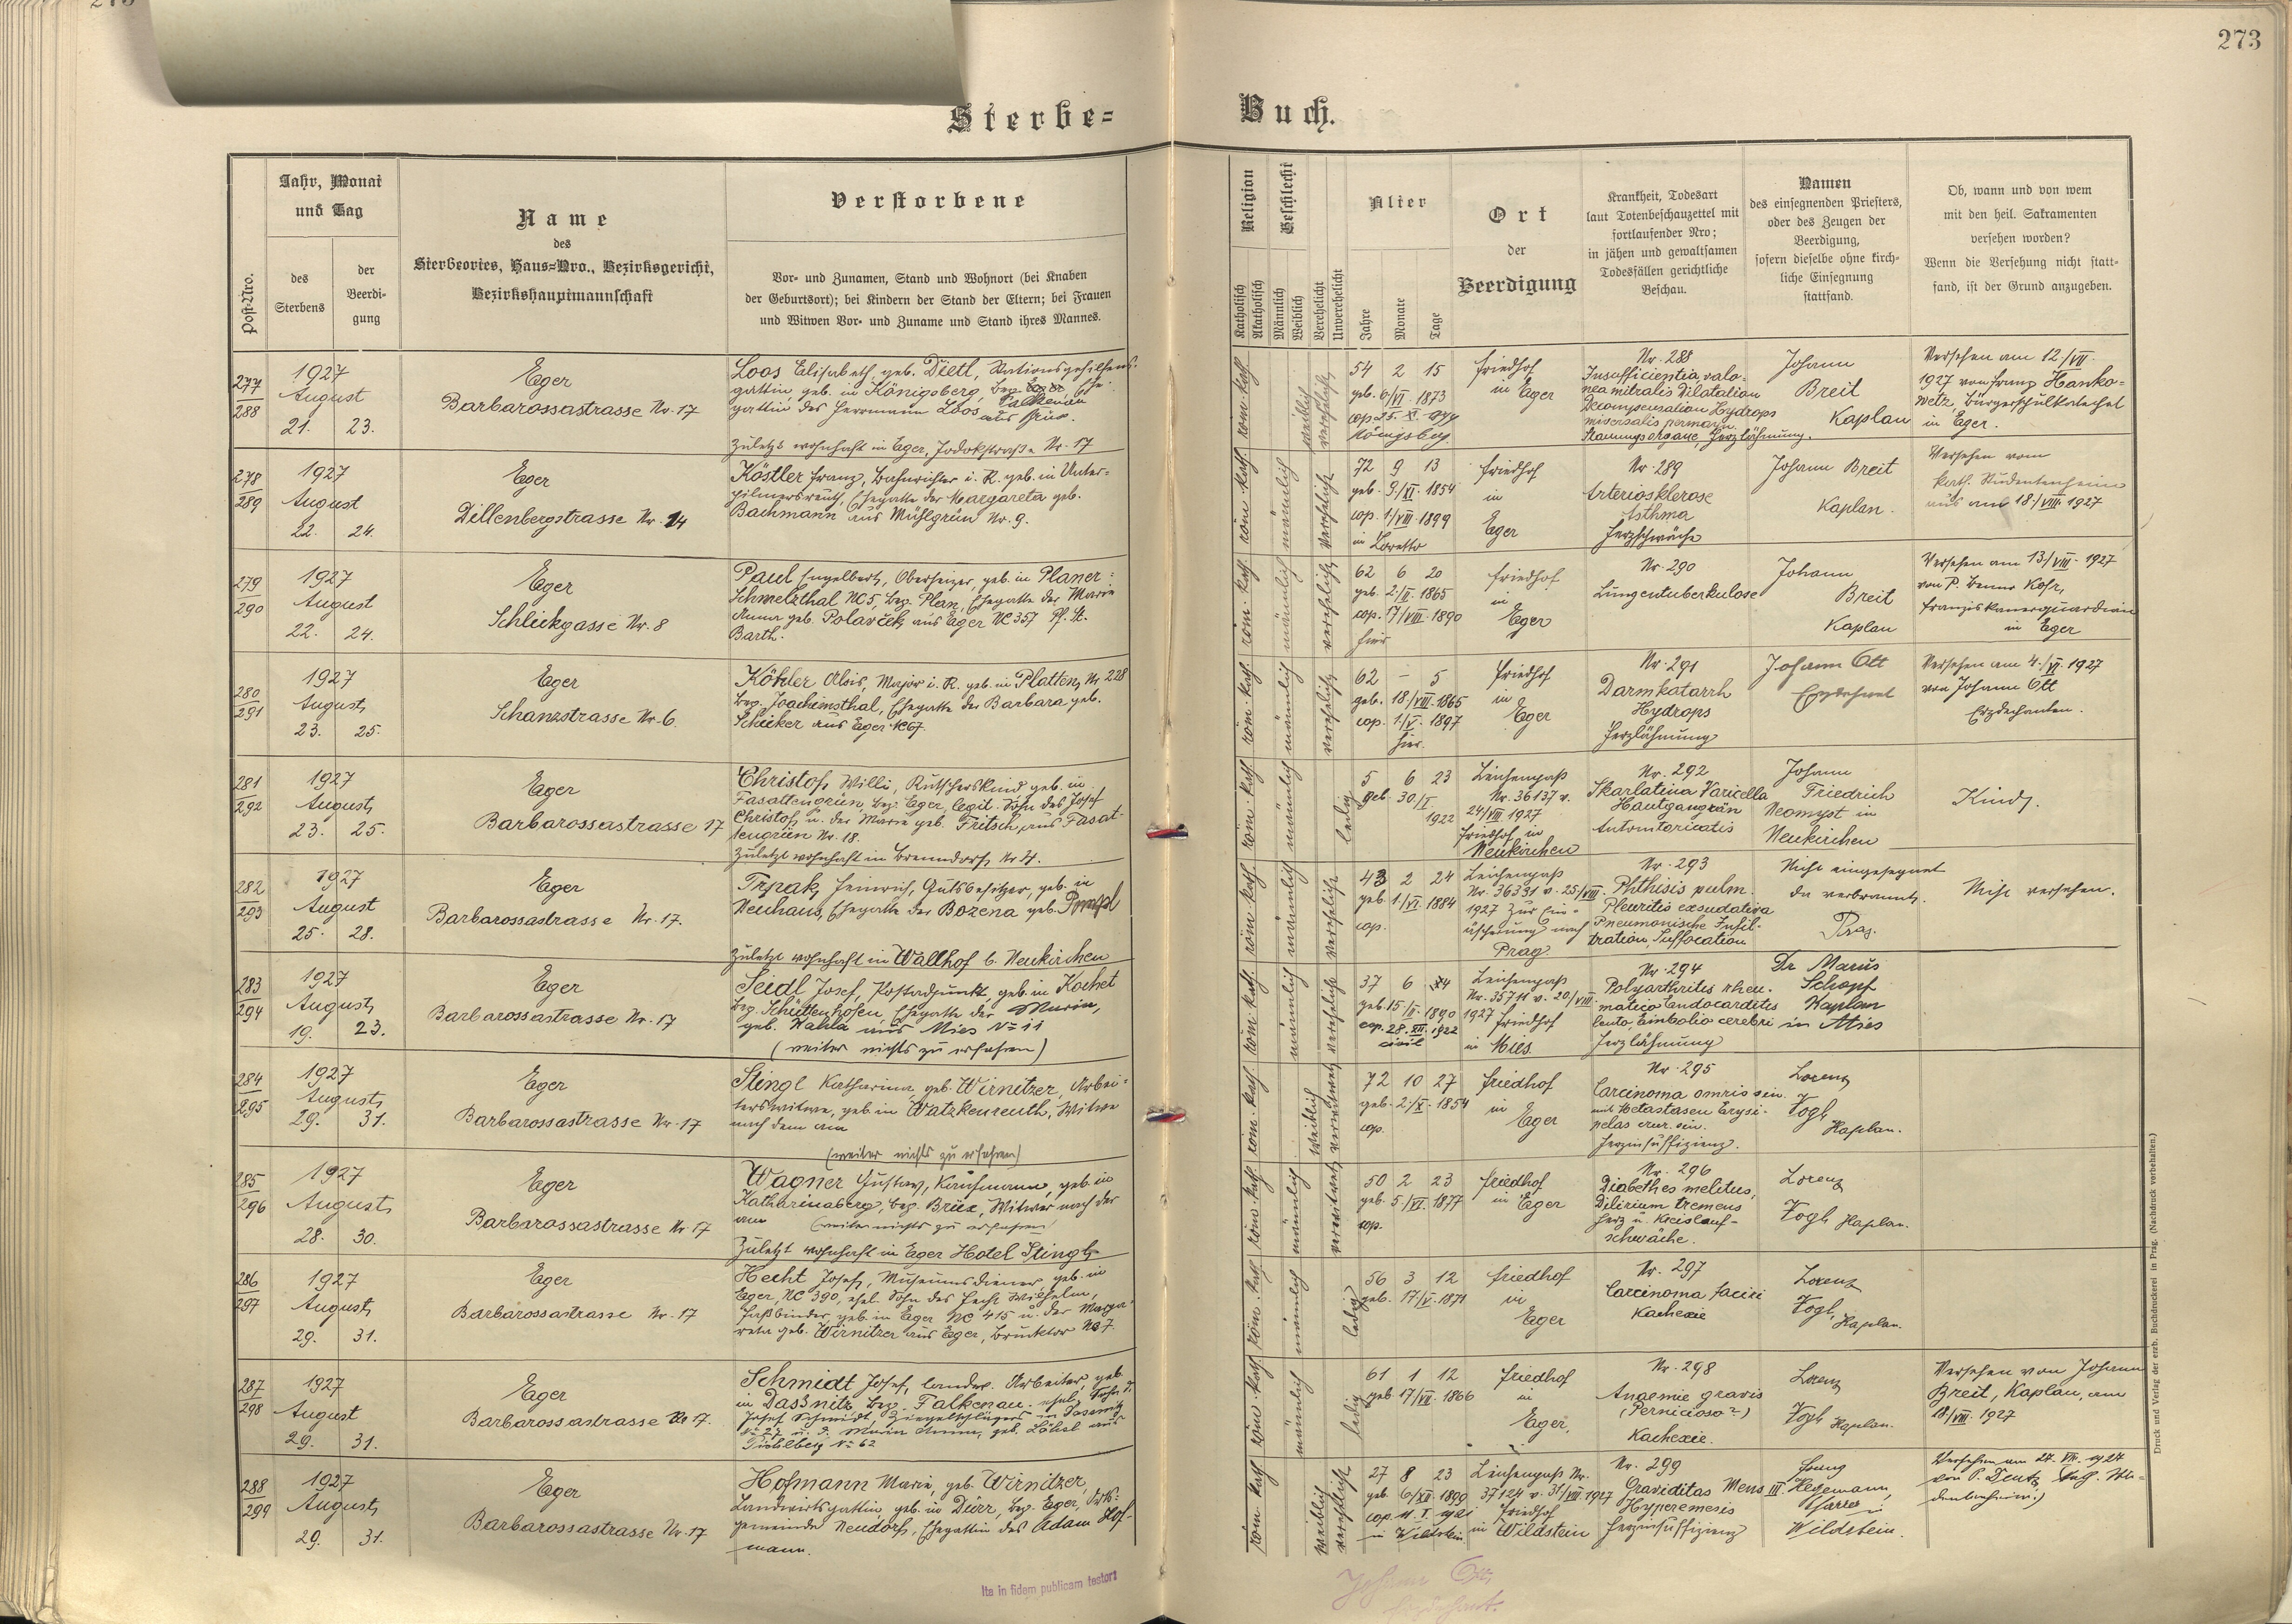 273
Sterbe-
Buch.
Post-Nro.
Jahr, Monat
und Tag
des
Sterbens
der
Beerdi-
gung
Name
des
Sterbeortes, Haus-Nro., Bezirksgericht,
Bezirkshauptmannschaft
Verstorbene
Vor- und Zunamen, Stand und Wohnort (bei Knaben
der Geburtsort); bei Kindern der Stand der Eltern; bei Frauen
und Witwen Vor- und Zuname und Stand ihres Mannes.
Religion
Katholisch
Akatholisch
Geschlecht
Männlich
Weiblich
Verehelicht
Unverehelicht
Alter
Jahre
Monate
Tage
Ort
der
Beerdigung
Krankheit, Todesart
laut Totenbeschauzettel mit
fortlaufender Nro;
in jähen und gewaltsamen
Todesfällen gerichtliche
Beschau.
Namen
des einsegnenden Priesters,
oder des Zeugen der
Beerdigung,
sofern dieselbe ohne kirch-
liche Einsegnung
stattfand.
Ob, wann und von wem
mit den heil. Sakramenten
versehen worden?
Wenn die Versehung nicht statt-
fand, ist der Grund anzugeben.
277
288
1927
August
21. 23.
Eger
Barbarossastrasse Nr. 17
Loos Elisabeth, geb. Dietl, Stationsgehilfens-
gattin, geb. in Königsberg, Bez. Falkenau, Ehe-
gattin des Herrmann Loos
Zuletzt wohnhaft in Eger, Jodokstraße Nr. 17
röm. kath.
weiblich
verehelicht
54 2 15
geb. 6/VI. 1873
Königsberg
Friedhof
in Eger
Nr. 288
Insufficientia valo-
nea mitralis Dilatation
Decompensation Hydrops
Stauungsorgane, Herzlähmung.
Johann
Breit
Kaplan
Versehen am 12/VII.
1927 von Franz Hanko-
wetz, Bürgerschulkatechet
in Eger.
278
289
1927
August
22. 24.
Eger
Dillenbergstrasse Nr. 14
Köstler Franz, Bahnrichter i. R. geb. in Unter-
pilmersreuth, Ehegatte der Margareta geb.
Bachmann aus Mühlgrün Nr. 9.
röm. kath.
männlich
verehelicht
72 9 13
geb. 9/XI. 1854
cop. 1/VIII. 1899
in Loretto
Friedhof
in
Eger
Nr. 289
Arteriosklerose
Asthma
Herzschwäche
Johann Breit
Kaplan.
Versehen vom
kath. Studentenheim
aus am 18/VIII. 1927
279
290
1927
August
22. 24.
Eger
Schlickgasse Nr. 8
Paul Engelbert, Oberheizer, geb. in Planer-
Schmelzthal NC 5, Bez. Plan, Ehegatte der Marie
Anna geb. Polaček, aus Eger NC 357 Pf. St.
Barth.
röm. kath.
männlich
verehelicht
62 6 20
geb. 2/II. 1865
cop. 17/VIII. 1890
hier
Friedhof
in
Eger
Nr. 290
Lungentuberkulose
Johann
Breit
Kaplan
Versehen am 13/VIII. 1927
von P. Benno Kohr,
Franziskanerguardian
in Eger
280
291
1927
August
23. 25.
Eger
Schanzstrasse Nr. 6
Köhler Alois, Major i. R. geb. in Platten, Nr 228
Bez. Joachimsthal, Ehegatte der Barbara geb.
aus Eger NC 67.
röm. kath.
männlich
verehelicht
62 - 5
geb. 18/VIII. 1865
cop. 1/V. 1897
hier.
Friedhof
in
Eger
Nr. 291
Darmkatarrh
Hydrops
Herzlähmung
Johann Ott
Erzdechant
Versehen am 4./VI. 1927
von Johann Ott
Erzdechanten.
281
292
1927
August
23. 25.
Eger
Barbarossastrasse 17
Christof, Willi, Kutscherskind geb. in
Fasattengrün, Bez. Eger, legit. Sohn des Josef
Christof u. der Marie geb. Fritsch, aus Fasat-
tengrün Nr. 18.
Zuletzt wohnhaft in Brenndorf, Nr 4.
röm. kath.
männlich
ledig
5 6 23
geb. 30/I.
1922
Leichenpaß
Nr. 36137 v.
24/VIII. 1927
Friedhof in
Neukirchen
Nr. 292
Skarlatina Varicella
Hautgangrän
Johann
Friedrich
Neomyst in
Neukirchen
Kind.
282
293
1927
August
25. 28.
Eger
Barbarossastrasse Nr. 17.
Trpak, Heinrich, Gutsbesitzer, geb. in
Neuhaus, Ehegatte der Bozena geb.
Zuletzt wohnhaft in Wallhof b. Neukirchen
röm. kath.
männlich
verehelicht
43 2 24
geb. 1/VI. 1884
cop.
Leichenpaß
Nr. 36391 v. 25/VIII.
1927 zur Ein-
äscherung nach
Prag.
Nr. 293
Phthisis pulm.
Pleuritis exsudativa
Pneumonische Infil-
tration, Suffocation
Nicht eingesegnet
da verbrannt.
Prag.
Nicht versehen.
283
294
1927
August
19. 23.
Eger
Barbarossastrasse Nr. 17
Seidl Josef, Postadjunkt, geb. in Kochet
Bez. Schüttenhofen, Ehegatte der Maria,
geb. Wahla aus Mies No 11
(weiter nichts zu erfahren)
röm. kath.
männlich
verehelicht
37 6 4
geb. 15/II. 1890
cop. 28. XII. 1922
civil
Leichenpaß
Nr. 35711 v. 20/VIII.
1927 Friedhof
in Mies.
Nr. 294
Polyarthrites rheu-
matica Endocarditis
lenta, Embolia cerebri
Herzlähmung
Dr Marius
Schopf
Kaplan
in Mies
284
295
1927
August
29. 31.
Eger
Barbarossastrasse Nr. 17
Stingl Katharina, geb. Wirnitzer, Arbei-
terswitwe, geb. in Watzkenreuth, Witwe
nach dem am
(weiter nichts zu erfahren)
röm. kath.
weiblich
verwitwet
72 10 27
geb. 2/X. 1854
cop.
Friedhof
in
Eger
Nr. 295
Carcinoma omris sin.
mit Metastasen Erysi-
pelas crur. sin.
Herzinsuffizienz.
Lorenz
Vogl,
Kaplan.
285
296
1927
August
28. 30.
Eger
Barbarossastrasse Nr 17
Wagner Gustav, Kaufmann, geb. in
Katharinaberg, Bez. Brüx, Witwer nach der
am (weiter nichts zu erfahren)
Zuletzt wohnhaft in Eger Hotel Stingl.
röm. kath.
männlich
verwitwet
50 2 23
geb. 5/VI. 1877
cop.
Friedhof
in Eger
Nr. 296
Diabethes melitus,
Dilirium tremens
Herz u. Kreislauf-
schwäche.
Lorenz
Vogl, Kaplan.
286
297
1927
August
29. 31.
Eger
Barbarossastrasse Nr. 17
Hecht Josef, Museumsdiener, geb. in
Eger, NC 390, ehel. Sohn des Hecht Wilhelm,
Faßbinder, geb. in Eger NC 415 u. der Marga-
reta geb. Wirnitzer aus Eger, Brucktor No 7.
röm. kath.
männlich
ledig
56 3 12
geb. 17/V. 1871
Friedhof
in
Eger
Nr. 297
Carcinoma faciei
Kachexie
Lorenz
Vogl,
Kaplan.
287
298
1927
August
29. 31.
Eger
Barbarossastrasse No 17.
Schmidt Josef, landw. Arbeiter, geb.
in Dassnitz Bez. Falkenau, ehel. Sohn d.
Josef Schmidt, Ziegelschlägers in Dassnitz
No 27 u. d. Maria Anna, geb. Lößl aus
No 62
röm. kath.
männlich
ledig
61 1 12
geb. 17/VII. 1866
Friedhof
in
Eger,
Nr. 298
Anaemie gravis
(Pernicioso?)
Kachexie.
Lorenz
Vogl, Kaplan.
Versehen von Johann
Breit, Kaplan, am
18/VIII. 1927
288
299
1927
August
29. 31.
Eger
Barbarossastrasse Nr. 17
Hofmann Marie, geb. Wirnitzer,
Landwirtsgattin, geb. in Dürr, Bez. Eger, Orts-
gemeinde Neudorf, Ehegattin des Adam Hof-
mann.
röm. kath.
weiblich
verehelicht
27 8 23
geb. 6/XII. 1899
cop. 11. I. 1921
in Wildstein
Leichenpaß Nr.
37124 v. 31/VIII. 1927
Friedhof
in Wildstein
Nr. 299
Graviditas Mens III.
Hyperemesis
Herzinsuffizienz
Franz
Hegemann,
Pfarrer in
Wildstein.
Ita in fidem publicam testort
Johann Ott,
Erzdechant.
Druck und Verlag der erzb. Buchdruckerei in Prag. (Nachdruck vorbehalten.)